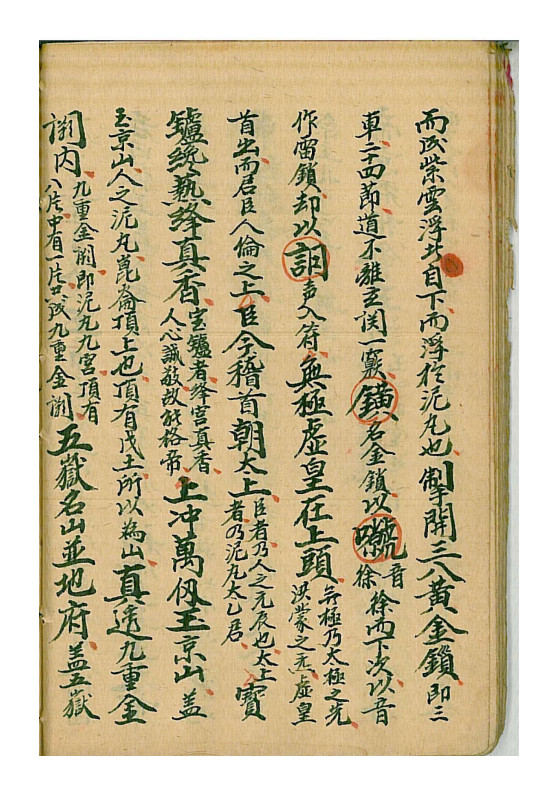 而成紫雲浮於自下而浮於泥丸也掣開三八黃金鎖即三
車二十四節道不離玄関一竅鐄名金鎖以㘐音徐徐而下次以音
作雷鎖却以訚声入符無極虛皇在上頭無極乃太極之先洪蒙之炁虛皇
首出而君臣人倫之上臣今稽首朝太上臣者乃人之元辰也太上者乃泥丸太乙君寶
鑪纔熱絳真香宝鑪者絳宮真香人心誠敬故能格帝上冲萬仭玉京山蓋
玉京山人之泥丸崑崙頂上也頂有戊土所以為山真透九重金
闕内九重金闕即泥丸九宮頂有八片中有一片共成九重金闕五嶽名山並地府蓋五嶽